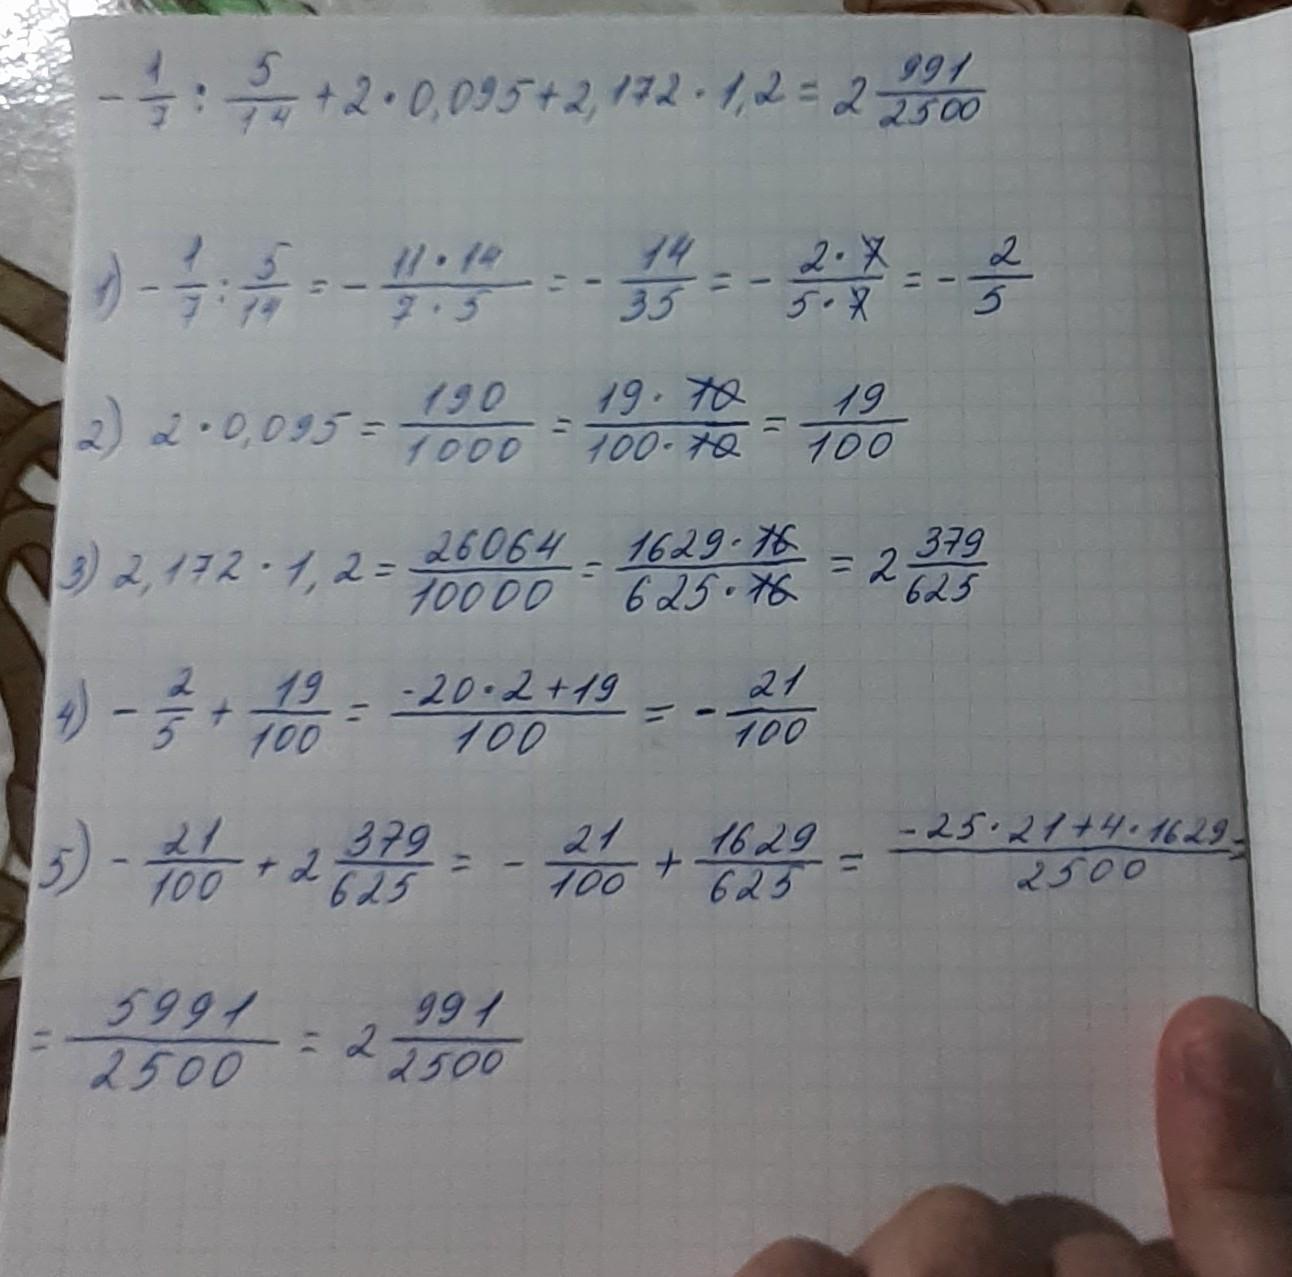 - 1/7 : 5/14 + 2 · 0,095 + 2,172 · 1,2 = 2 991/2500
1) - 1/7 : 5/14 = - 11 · 14/7 · 5 = - 14/35 = - 2 · 7/5 · 7 = - 2/5
2) 2 · 0,095 = 190/1000 = 19 · 10/100 · 10 = 19/100
3) 2,172 · 1,2 = 26064/10000 = 1629 · 16/625 · 16 = 2 379/625
4) - 2/5 + 19/100 = -20 · 2 + 19/100 = - 21/100
5) - 21/100 + 2 379/625 = - 21/100 + 1629/625 = -25 · 21 + 4 · 1629/2500 =
= 5991/2500 = 2 991/2500